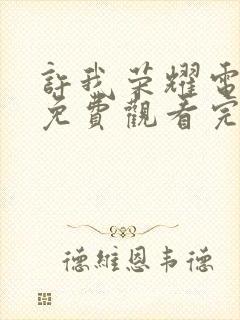 許我荣耀電
免費觀看完
德維恩韦德